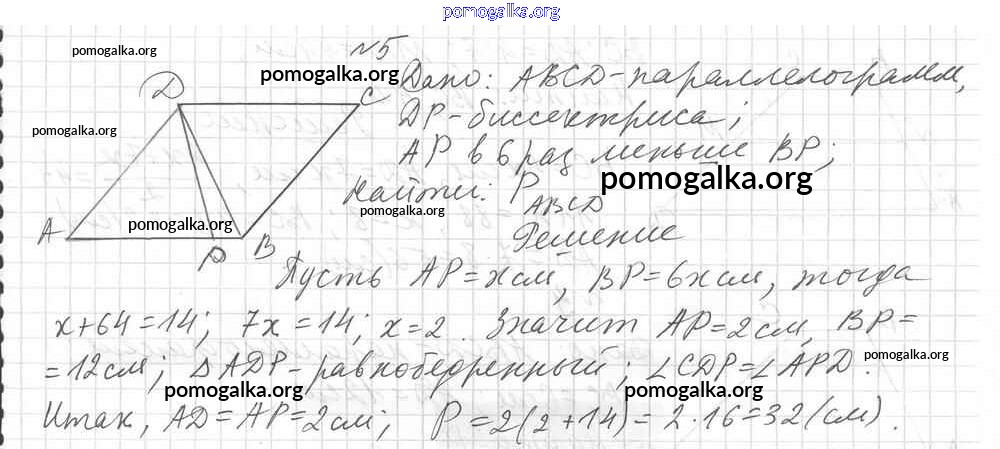 pomogalka.org
N5
pomogalka.org
pomogalka.org
Дано: ABCD-параллелограмм,
D C
DP-биссектриса;
pomogalka.org
AP в 6 раз меньше BP;
pomogalka.org
Найти: P ABCD
pomogalka.org
pomogalka.org
A P B
Решение
Пусть AP=x см, BP=6x см, тогда
x+64=14; 7x=14; x=2. Значит AP=2см, BP=
=12см; △ADP-равнобедренный; ∠CDP=∠APD.
pomogalka.org
pomogalka.org
pomogalka.org
Итак, AD=AP=2см; P=2(2+14)=2·16=32(см).